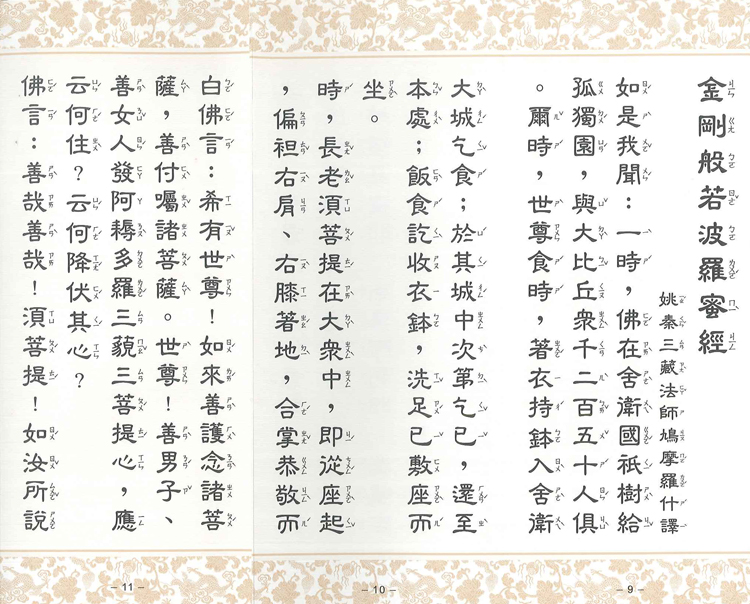 金剛般若波羅蜜經
姚秦三藏法師鳩摩羅什譯
如是我聞：一時，佛在舍衛國祇樹給
孤獨園，與大比丘眾千二百五十人俱
。爾時，世尊食時，著衣持鉢入舍衛
大城乞食；於其城中次第乞已，還至
本處；飯食訖收衣鉢，洗足已敷座而
坐。
時，長老須菩提在大眾中，即從座起
，偏袒右肩、右膝著地，合掌恭敬而
白佛言：希有世尊！如來善護念諸菩
薩，善付囑諸菩薩。世尊！善男子、
善女人發阿耨多羅三藐三菩提心，應
云何住？云何降伏其心？
佛言：善哉善哉！須菩提！如汝所說
－9－
－10－
－11－